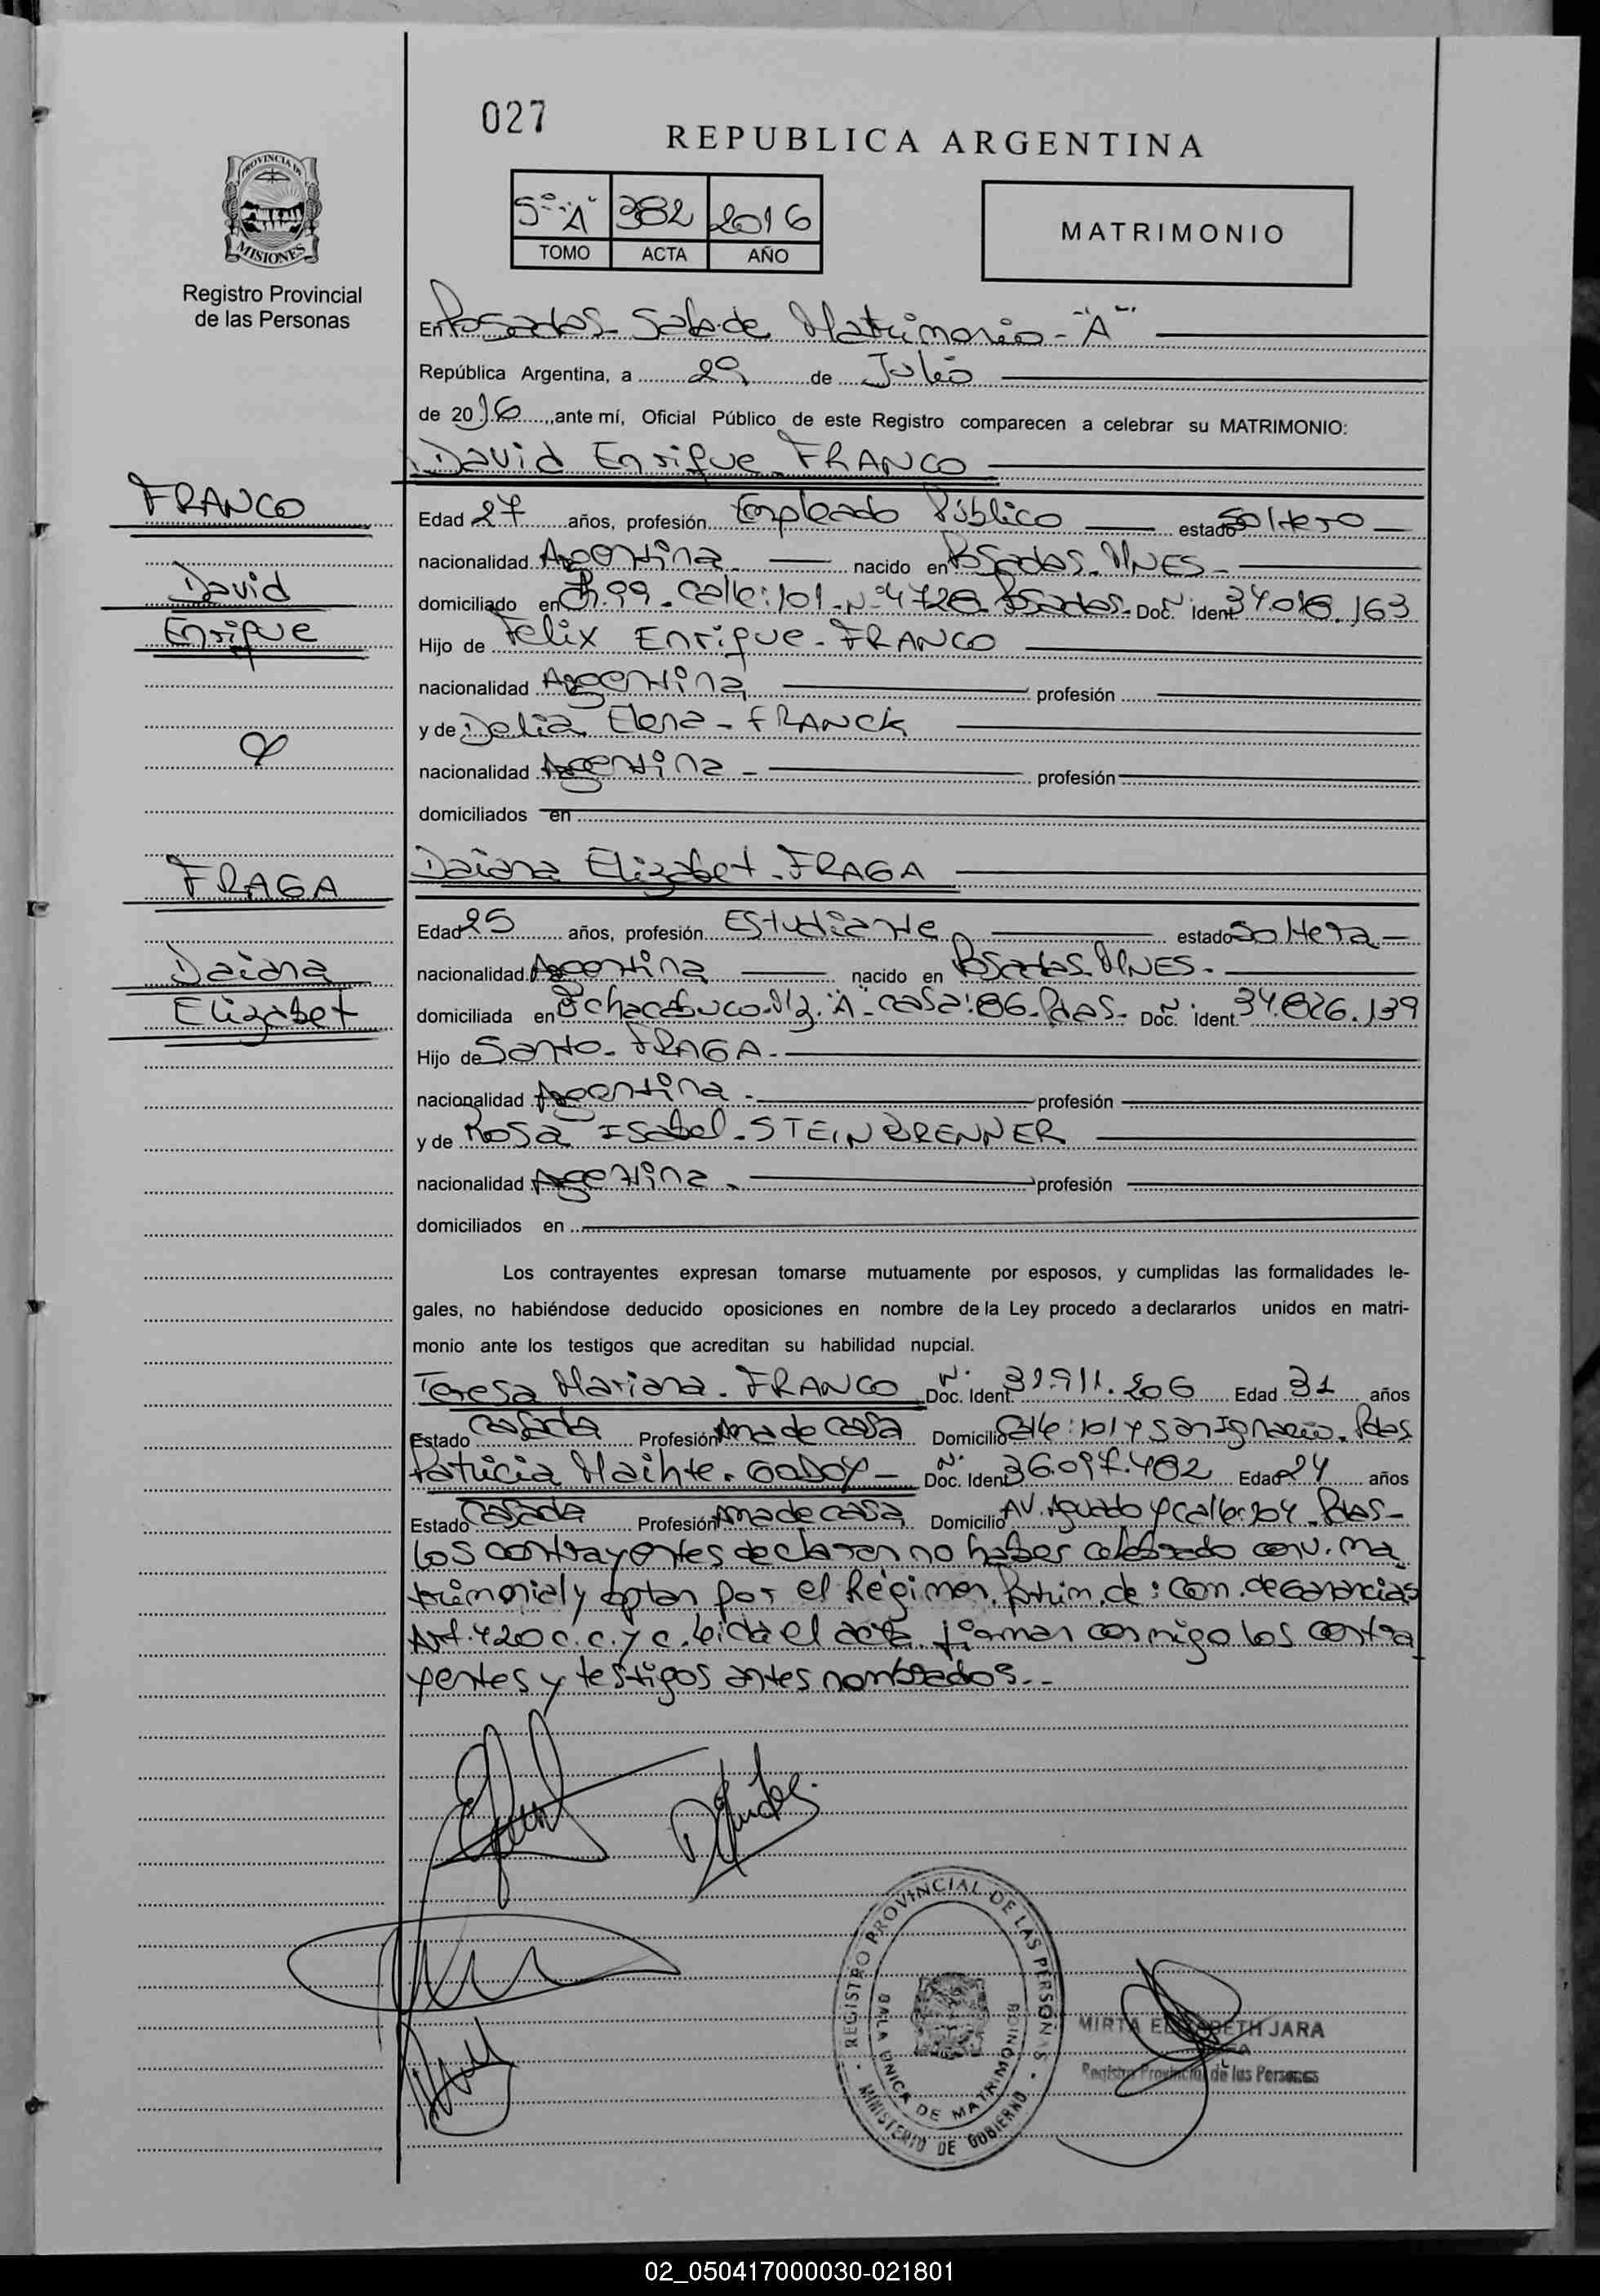 027
REPUBLICA ARGENTINA
PROVINCIA DE
MISIONES
Registro Provincial
de las Personas
5º "A" 382 2016
TOMO ACTA AÑO
MATRIMONIO
En Posadas - Sala de Matrimonio - "A"
República Argentina, a 29 de Julio
de 2016, ante mí, Oficial Público de este Registro comparecen a celebrar su MATRIMONIO:
David Enrique FRANCO
FRANCO
David
Enrique
Edad 27 años, profesión Empleado Público estado Soltero
nacionalidad Argentina nacido en Posadas - MNES -
domiciliado en Ch. 99 - Calle: 101 - Nº 4728 - Posadas - Doc. Nº Ident. 34.016.163
Hijo de Felix Enrique - FRANCO
nacionalidad Argentina profesión
y de Delia Elena - FRANCK
nacionalidad Argentina - profesión
domiciliados en
FRAGA
Daiana
Elizabet
Daiana Elizabet - FRAGA
Edad 25 años, profesión Estudiante estado Soltera -
nacionalidad Argentina nacido en Posadas - MNES -
domiciliada en Bº Chacabuco - Mz. "A" - casa: 86 - Pdas - Doc. Nº ident. 34.826.139
Hijo de Santo - FRAGA -
nacionalidad Argentina - profesión
y de Rosa Isabel - STEINBRENNER
nacionalidad Argentina - profesión
domiciliados en
Los contrayentes expresan tomarse mutuamente por esposos, y cumplidas las formalidades le-
gales, no habiéndose deducido oposiciones en nombre de la Ley procedo a declararlos unidos en matri-
monio ante los testigos que acreditan su habilidad nupcial.
Teresa Mariana - FRANCO Doc. Nº Ident. 31.911.206 Edad 31 años
Estado Casada Profesión Ama de casa Domicilio Calle: 101 y San Ignacio - Pdas
Patricia Maihte - GODOY - Doc. Nº Ident. 36.097.482 Edad 24 años
Estado Casada Profesión Ama de casa Domicilio Av. Aguado y calle: 204 - Pdas -
Los contrayentes declaran no haber celebrado conv. ma
trimonial y optan por el Régimen Patrim. de: Com. de Ganancias
Art. 420 c.c. y c. leida el acta firman conmigo los contra
yentes y testigos antes nombrados. -
REGISTRO PROVINCIAL DE LAS PERSONAS
SALA UNICA DE MATRIMONIOS
MINISTERIO DE GOBIERNO
MIRTA ELIZABETH JARA
Registro Provincial de las Personas
02_050417000030-021801